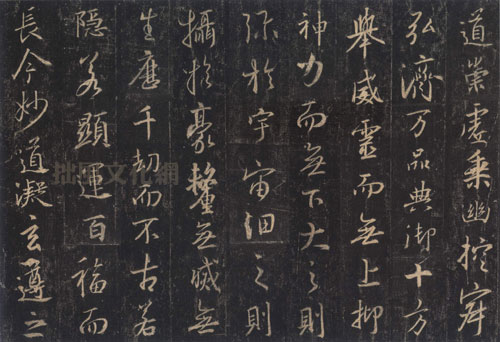 道崇虛乘幽控寂
弘濟万品典御十方
舉威靈而無上抑
神力而無下大之則
弥於宇宙細之則
攝於豪釐無滅無
生歷千劫而不古若
隱若顯運百福而
長今妙道凝玄遵之
文化網